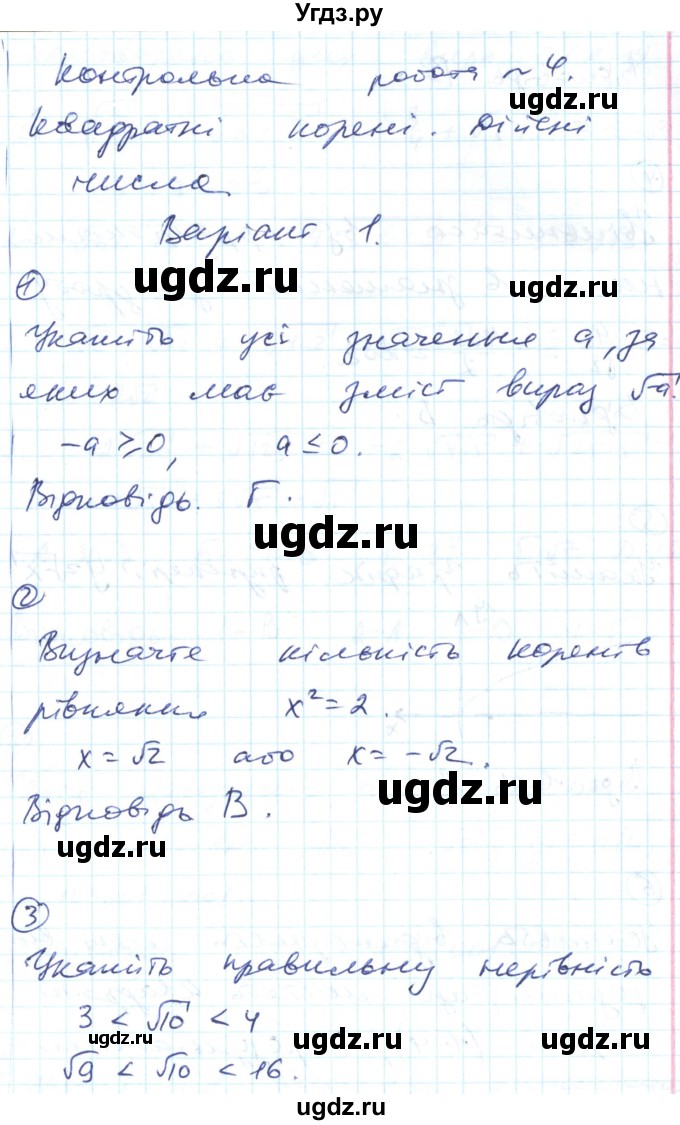 Угдз.ру
Контрольна робота ~ 4.
ugdz.ru
Квадратні корені. Дійсні
числа
Варіант 1.
ugdz.ru
ugdz.ru
1
Укажіть усі значення a, за
яких має зміст вираз √a.
ugdz.ru
ugdz.ru
-a ≥ 0, a ≤ 0.
Відповідь. Г.
ugdz.ru
2
Визначте кількість коренів
рівняння x² = 2.
ugdz.ru
ugdz.ru
x = √2 або x = -√2.
ugdz.ru
Відповідь В.
ugdz.ru
3
Укажіть правильну нерівність
3 < √10 < 4
ugdz.ru
ugdz.ru
ugdz.ru
√9 < √10 < 16.
ugdz.ru